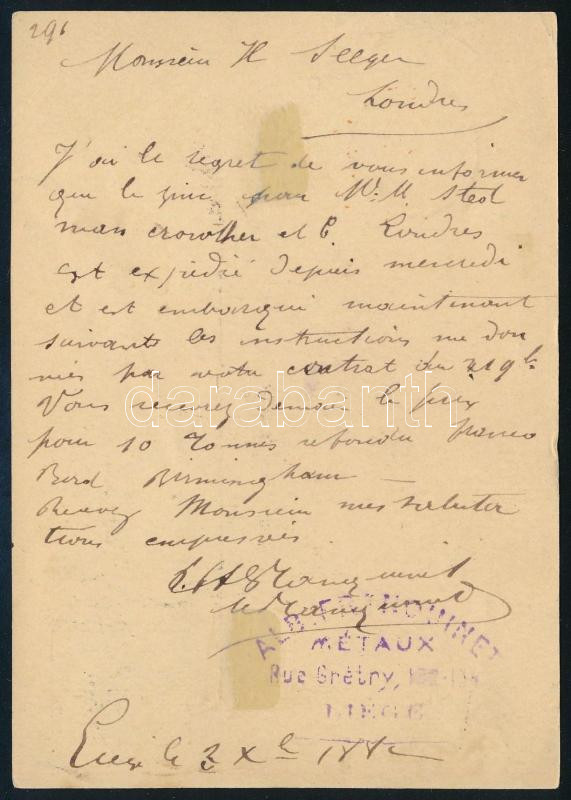 296
Monsieur H Seeger
Londres
J'ai le regret de vous informer
que le zinc pour Mr. M. Sted
man crowther et C. Londres
est expédié depuis mercredi
et est embarqué maintenant
suivants les instructions me don
nées par votre contrat du 21 9b.
Vous recevrez demain le prix
pour 10 Tonnes refondu franco
Bord Birmingham —
Recevez Monsieur mes saluta
tions empressées
darabanth
MÉTAUX
Rue Grétry,
LIEGE
Liege le 2 Xb 188